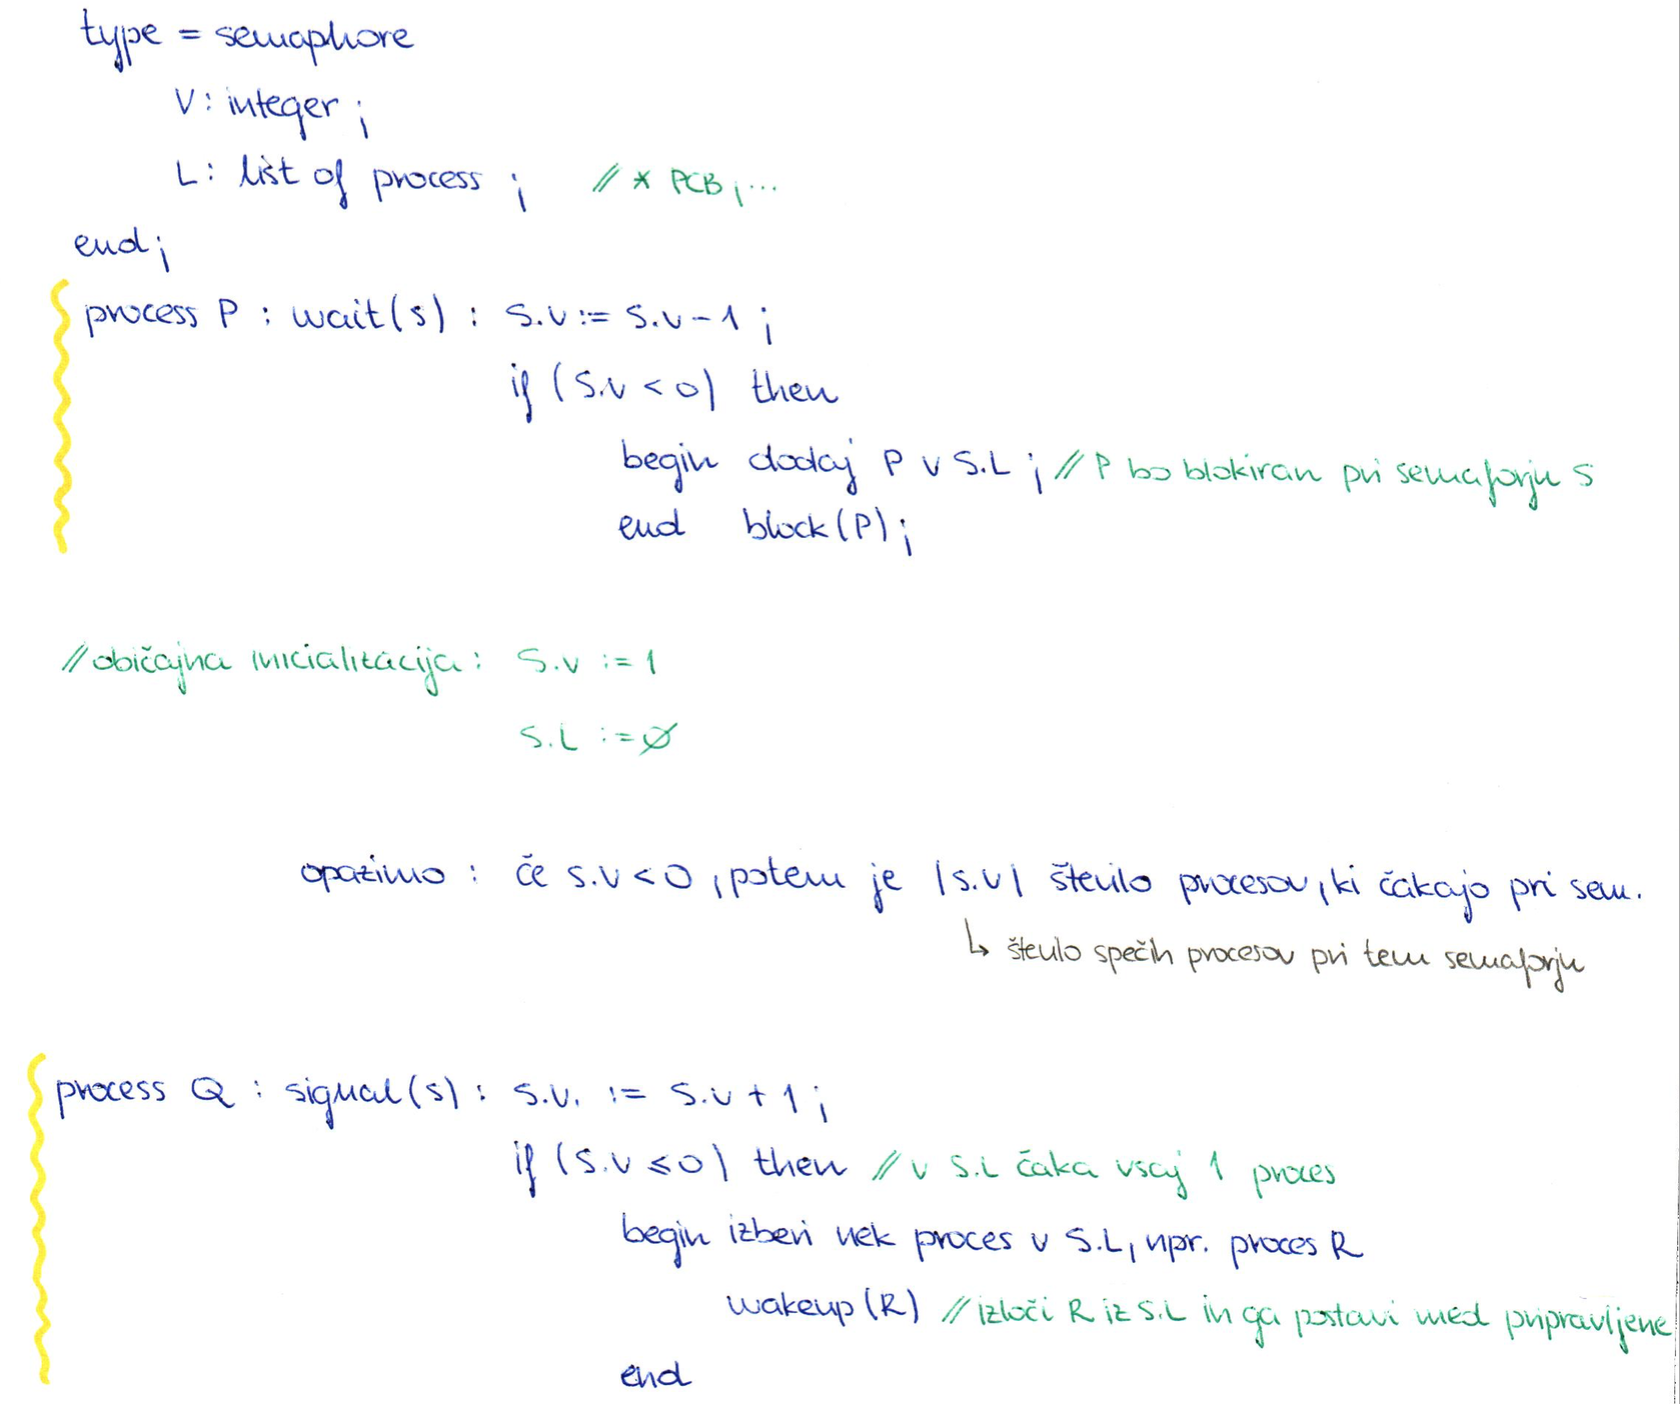 type = semaphore
V: integer ;
L: list of process ; // * PCB, ...
end;
process P : wait(s) : S.v := S.v - 1 ;
if (S.v < 0) then
begin dodaj P v S.L ; // P bo blokiran pri semaforju S
end block(P);
// običajna inicializacija : S.v := 1
S.L := ∅
opazimo : če s.v < 0, potem je |s.v| število procesov, ki čakajo pri sem.
↳ število spečih procesov pri tem semaforju
process Q : signal(s) : S.v. := S.v + 1 ;
if (S.v ≤ 0) then // v S.L čaka vsaj 1 proces
begin izberi nek proces v S.L, npr. proces R
wakeup(R) // izloči R iz S.L in ga postavi med pripravljene
end